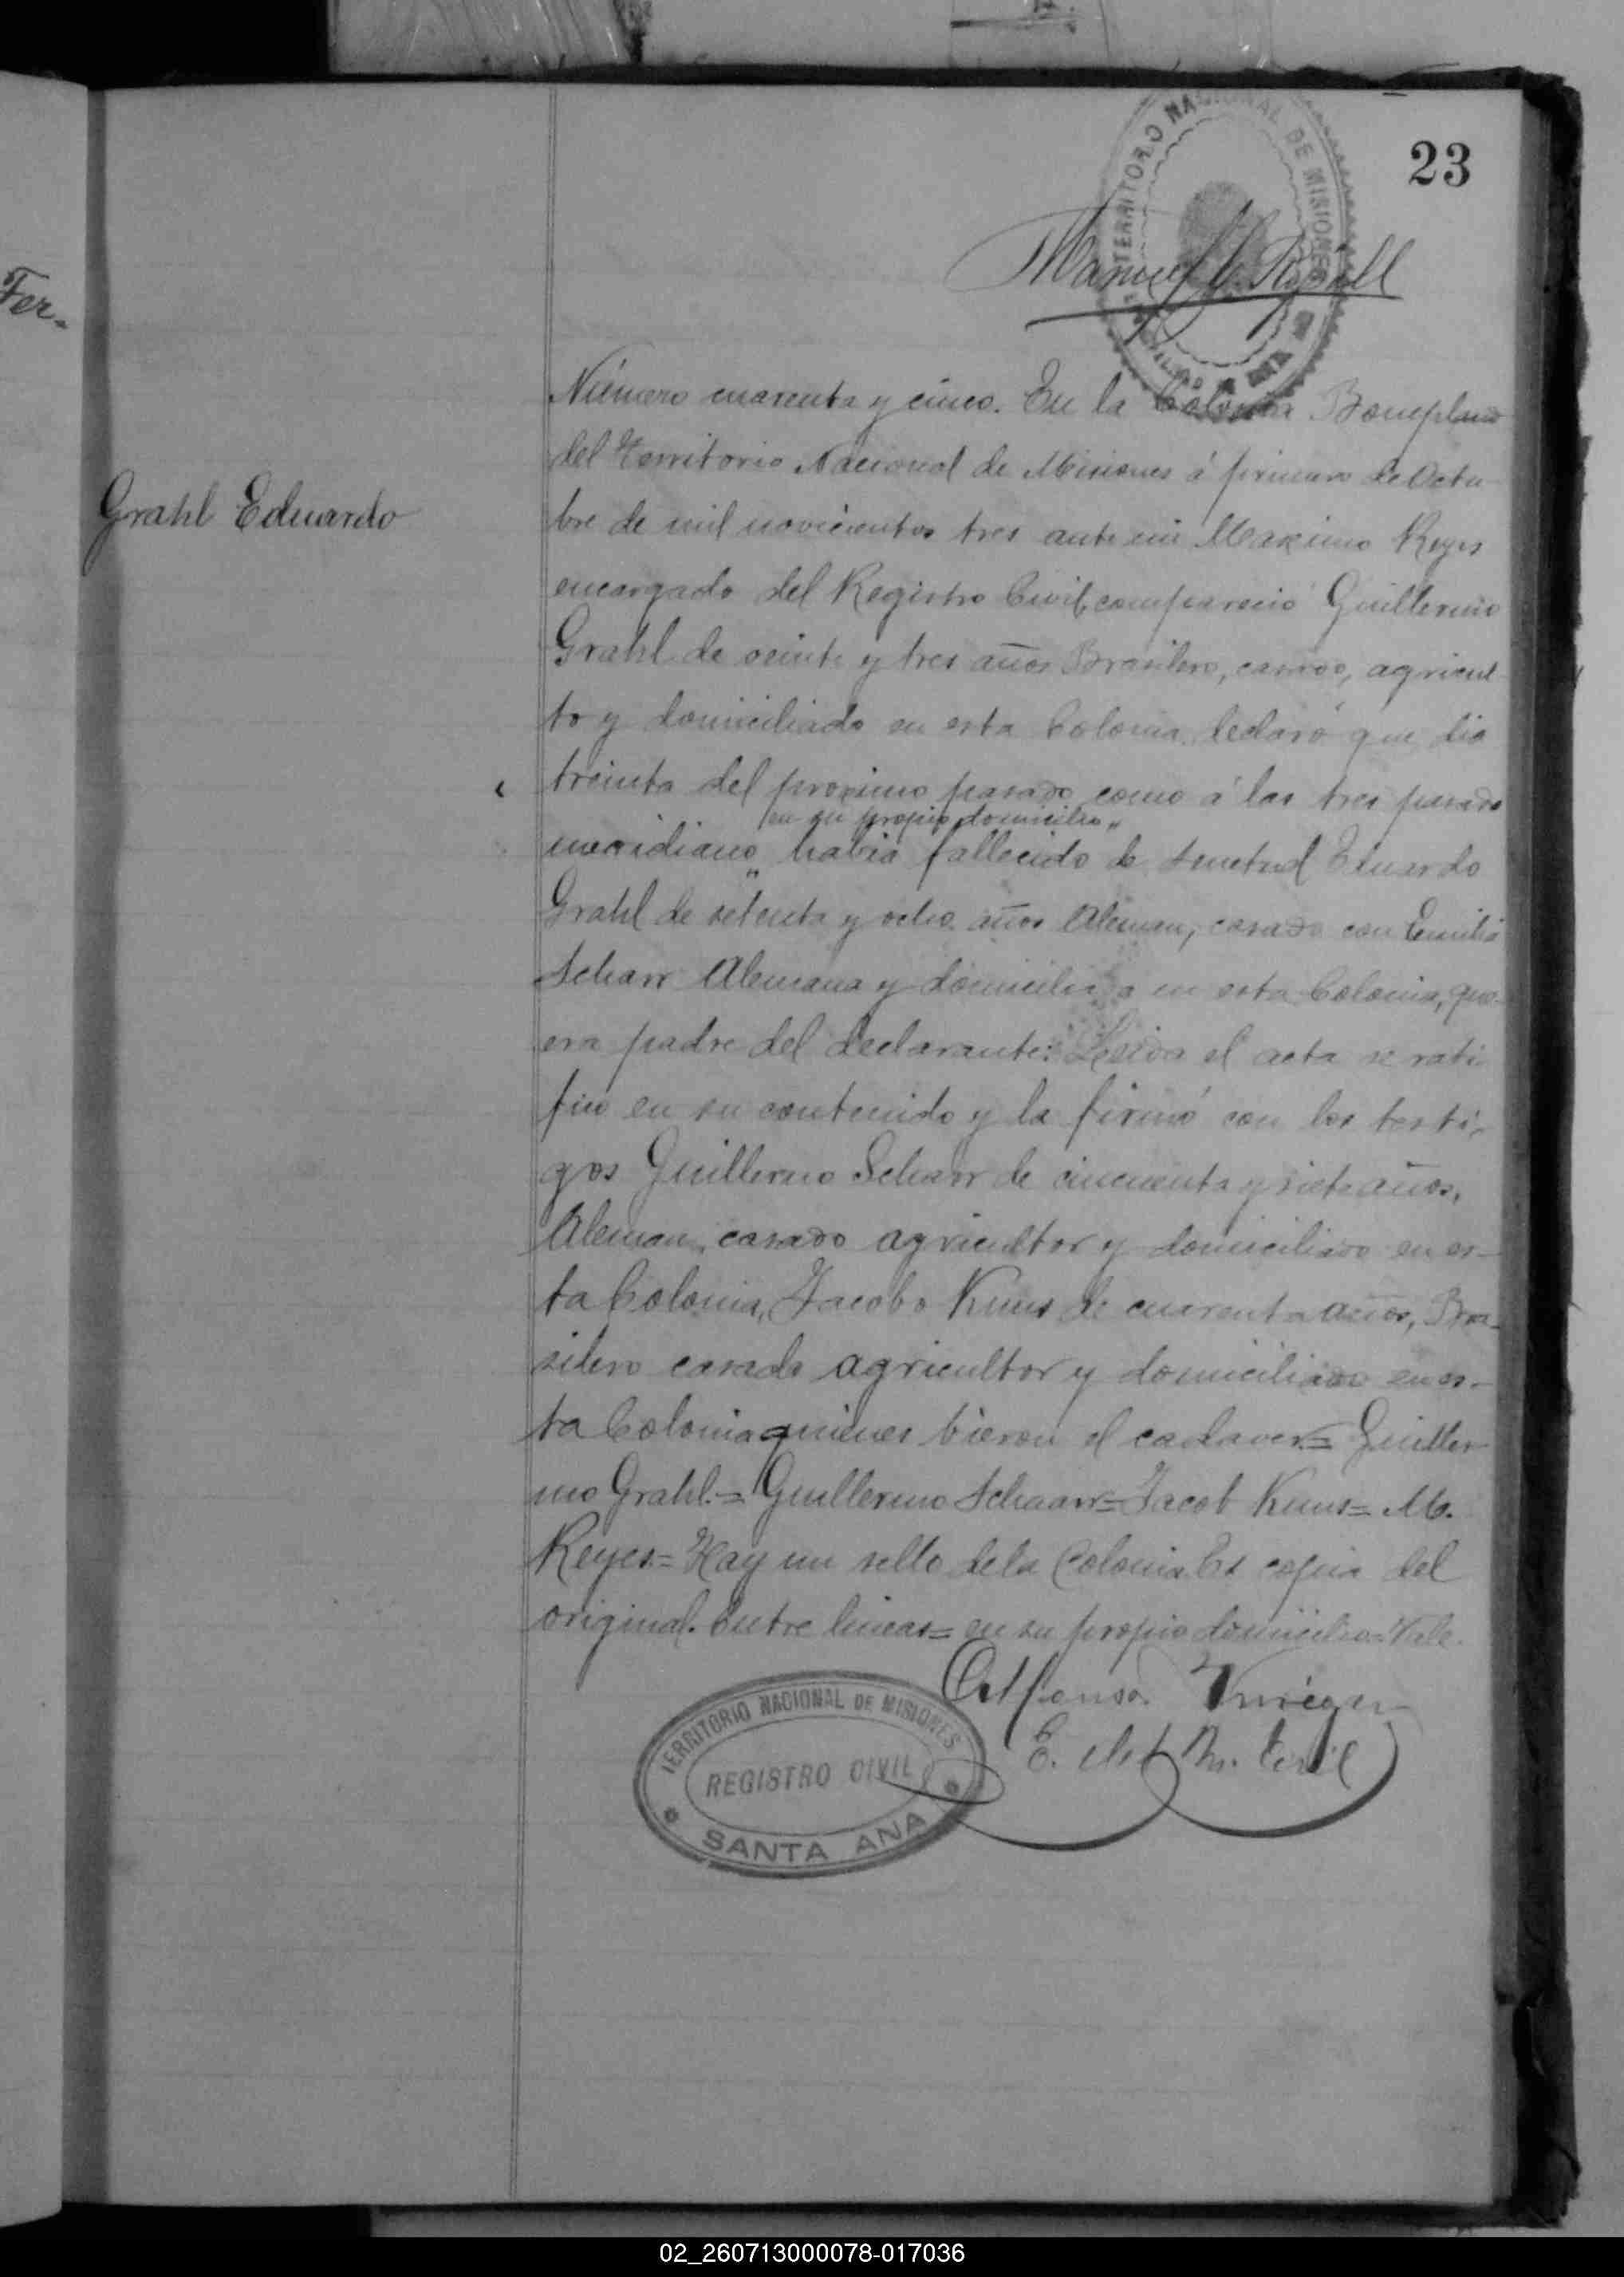 23
TERRITORIO NACIONAL DE MISIONES
Manuel
Fer-
Grahl Eduardo
Número cuarenta y cinco. En la Colonia Bompland
del Territorio Nacional de Misiones á primero de Octu-
bre de mil novecientos tres ante mi Maximo Reyes
encargado del Registro Civil, compareció Guillermo
Grahl de veinte y tres años Brasilero, casado, agricul
tor y domiciliado en esta Colonia, declaró que dia
treinta del proximo pasado como á las tres pasado
en su propio domicilio"
meridiano " habia fallecido de senetud Eduardo
Grahl de setenta y ocho años Aleman, casado con Emilia
Scharr Alemana y domiciliada en esta Colonia, que
era padre del declarante. Leida el acta se rati-
fico en su contenido y la firmó con los testi-
gos Guillermo Scharr de cincuenta y siete años,
Aleman, casado agricultor y domiciliado en es-
ta Colonia, Jacobo Kuns de cuarenta años, Bra-
silero casado agricultor y domiciliado en es-
ta Colonia quienes bieron el cadaver.= Guiller-
mo Grahl.= Guillermo Schaarr= Jacob Kuns= M.
Reyes.= Hay un sello de la Colonia. Es copia del
original. Entre lineas= en su propio domicilio= Vale.
Alfonso
E. del R. Civil
TERRITORIO NACIONAL DE MISIONES
REGISTRO CIVIL
SANTA ANA
02_260713000078-017036